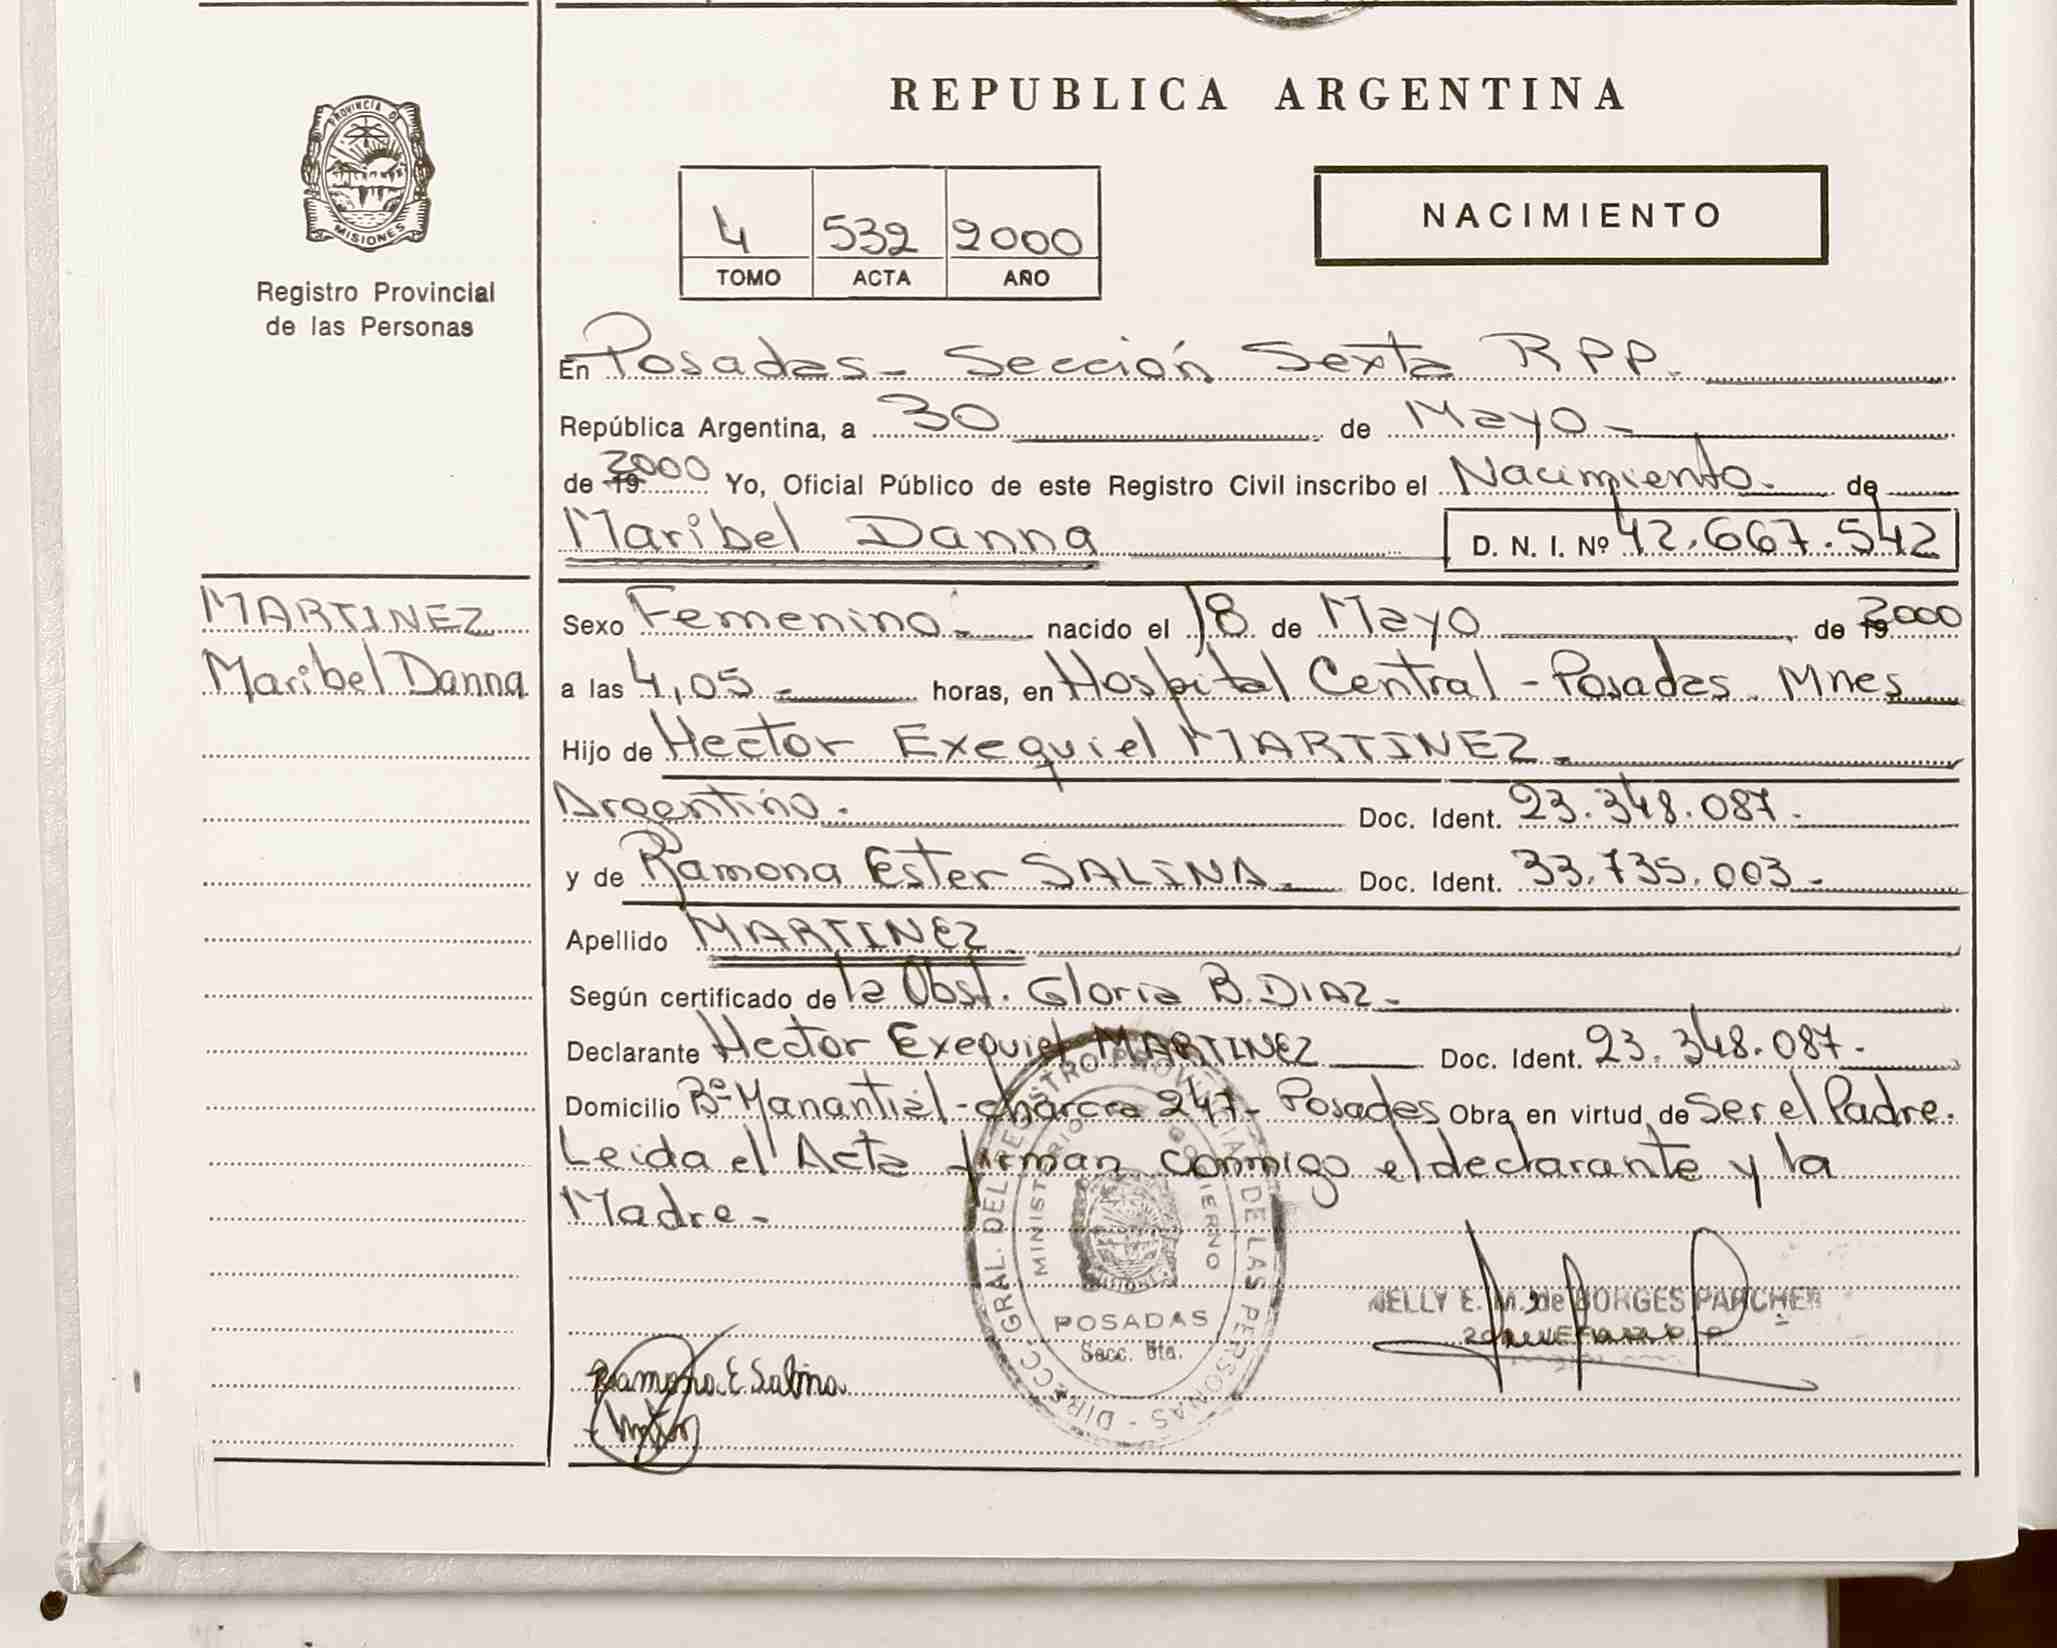 REPUBLICA ARGENTINA
PROVINCIA DE
MISIONES
Registro Provincial
de las Personas
4 532 2000
TOMO ACTA AÑO
NACIMIENTO
En Posadas - Sección Sexta R P P.
República Argentina, a 30 de Mayo -
de 19 2000 Yo, Oficial Público de este Registro Civil inscribo el Nacimiento. de
Maribel Danna D. N. I. Nº 42.667.542
MARTINEZ
Maribel Danna
Sexo Femenino.- nacido el 18 de Mayo de 19 2000
a las 4,05 - horas, en Hospital Central - Posadas. Mnes
Hijo de Hector Exequiel MARTINEZ.
Argentino. Doc. Ident. 23.348.087.-
y de Ramona Ester SALINA. Doc. Ident. 33.735.003.-
Apellido MARTINEZ
Según certificado de la Obst. Gloria B. DIAZ.
Declarante Hector Exequiel MARTINEZ Doc. Ident. 23.348.087.-
Domicilio Bº Manantial - chacra 247- Posadas Obra en virtud de Ser el Padre.
Leida el Acta firman conmigo el declarante y la
Madre -
DIRECC. GRAL. DEL REGISTRO PROVINCIAL DE LAS PERSONAS -
MINISTERIO GOBIERNO
POSADAS
Secc. 6ta.
NELLY E. M. de BORGES PARCHEN
Ramona E. Salina